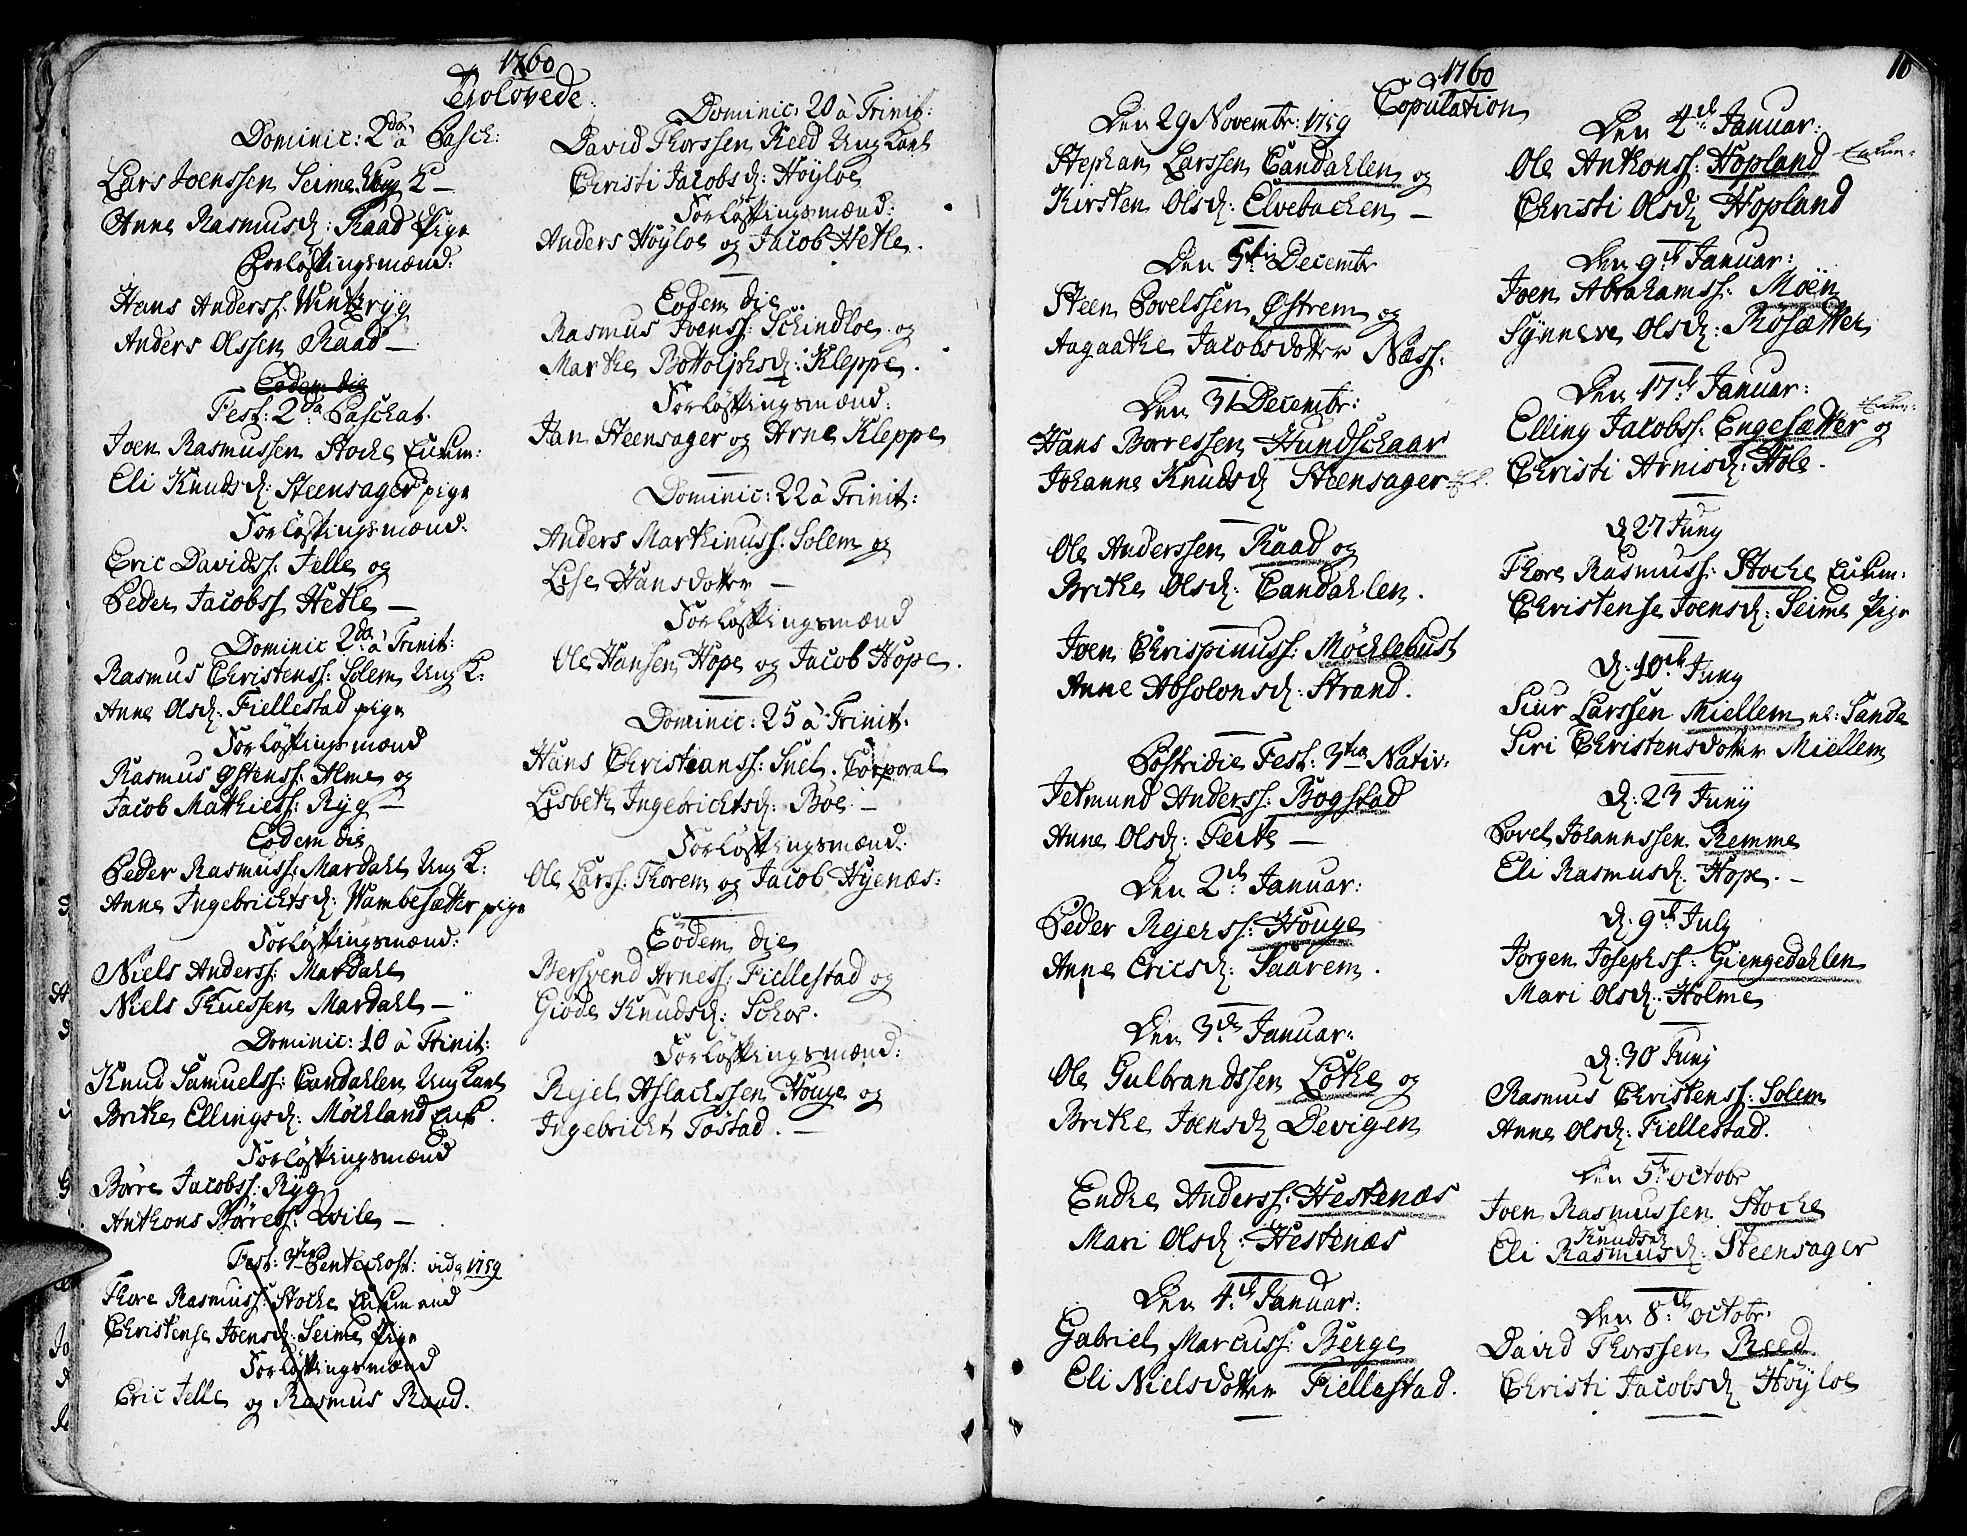 1760
Trolovede.
Dominic: 2da à Pasch:
Lars Joenssen Seime Ung K —
Anne Rasmusd: Raad Pige
Forløftningsmænd:
Hans Anderss: Winteryg
Anders Olssen Raad —
Eodem die
Fest: 2da Paschat.
Joen Rasmussen Stoche Enkem:
Eli Knudsd: Steensager pige
Forløftningsmænd:
Eric Davidss: Felle og
Peder Jacobss Hetle —
Dominic 2da à Trinit:
Rasmus Christenss: Solem Ung K:
Anne Olsd: Fiellestad pige
Forløftningsmænd
Rasmus Østenss: Alme og
Jacob Mathiess: Ryg —
Eodem die
Peder Rasmuss: Mardahl Ung K:
Anne Ingebrichtsd: Wambesætter pige
Forløftningsmænd:
Niels Anderss: Mardahl
Niels Thuessen Mardahl —
Dominic: 10 à Trinit:
Knud Samuelss: Candahlen Ung Karl
Brithe Ellingsd: Möchland Enk.
Forløftningsmænd
Børre Jacobss: Ryg
Anthons Børress: Wile —
Fest: 3tia Pentechost: vide 1759
Thore Rasmuss: Stoche Enkem and
Christense Joensd: Seime Pige
Forløftningsmænd
Eric Felle og Rasmus Raad.
Dominic: 20 à Trinit:
David Thorssen Reed Ung Karl
Christi Jacobsd: Höyloe
Forløftningsmænd:
Anders Höyloe og Jacob Hetle.
Eodem die
Rasmus Joenss: Schindloe og
Marthe Bottolphsd: Kleppe.
Forløftningsmænd:
Jan Steensager og Arne Kleppe
Dominic: 22 à Trinit:
Anders Marthinuss: Solem og
Lise Hansdotter —
Forløftningsmænd
Ole Hansen Hope og Jacob Hope.
Dominic: 25 à Trinit:
Hans Christianss: Snel. Corporal
Lisbeth Ingebrichtsd: Böe —
Forløftningsmænd:
Ole Larss: Thorem og Jacob Hyenæs:
Eodem die
Bersvend Arness: Fiellestad og
Giöde Knudsd: Sokor.
Forløftningsmænd:
Rejel Aslachssen Houge og
Ingebricht Töstad. —
1760
Copulation
10
Den 29 Novembr: 1759
Stephan Larssen Candahlen og
Kirsten Olsd: Elvebachen —
Den 5te Decembr
Steen Povelssen Østrem og
Aagaathe Jacobsdotter Næss:
Den 31 Decembr:
Hans Borressen Hundschaar
Johanne Knudsd Steensager
Ole Anderssen Raad og
Brithe Olsd: Candahlen.
Joen Chrispinuss: Möchlebust
Anne Absolonsd: Strand.
Postridie Fest: 3tia Nativ:
Jetmund Anderss: Bogstad
Anne Olsd: Feite —
Den 2de Januar:
Peder Rejerss: Houge
Anne Ericsd: Saarem.
Den 3de Januar:
Ole Gulbrandssen Lothe og
Brithe Joensd Devigen
Endre Anderss: Hestenæs
Mari Olsd: Hestenæs
Den 4de Januar:
Gabriel Marcuss: Berge
Eli Nielsdotter Fiellestad.
Den 4de Januar:
Ole Anthonss: Hopland Enkem:
Christi Olsd Hopland
Den 9de Januar:
Joen Abrahamss: Moën
Synneve Olsd: Rösætter
Den 17de Januar:
Elling Jacobss: Engesætter og Enkem:
Christi Arnisd: Hole.
d 27 Juny
Thore Rasmuss: Stoche Enkem:
Christense Joensd: Seime Pige
d. 10de Juny
Siur Larssen Miellem Sande
Siri Christensdotter Miellem
d: 23 Juny
Povel Johannssen Remme
Eli Rasmusd: Hope. —
d: 9de July
Jörgen Josephss: Giengedahlen
Mari Olsd: Holme
d: 30 Juny
Rasmus Christenss: Solem
Anne Olsd: Fiellestad.
Den 5te octobr
Joen Rasmussen Stoche
Knudsd
Eli Rasmusd: Steensager
Den 8de octobr:
David Thorssen Reed.
Christi Jacobsd Höyloe